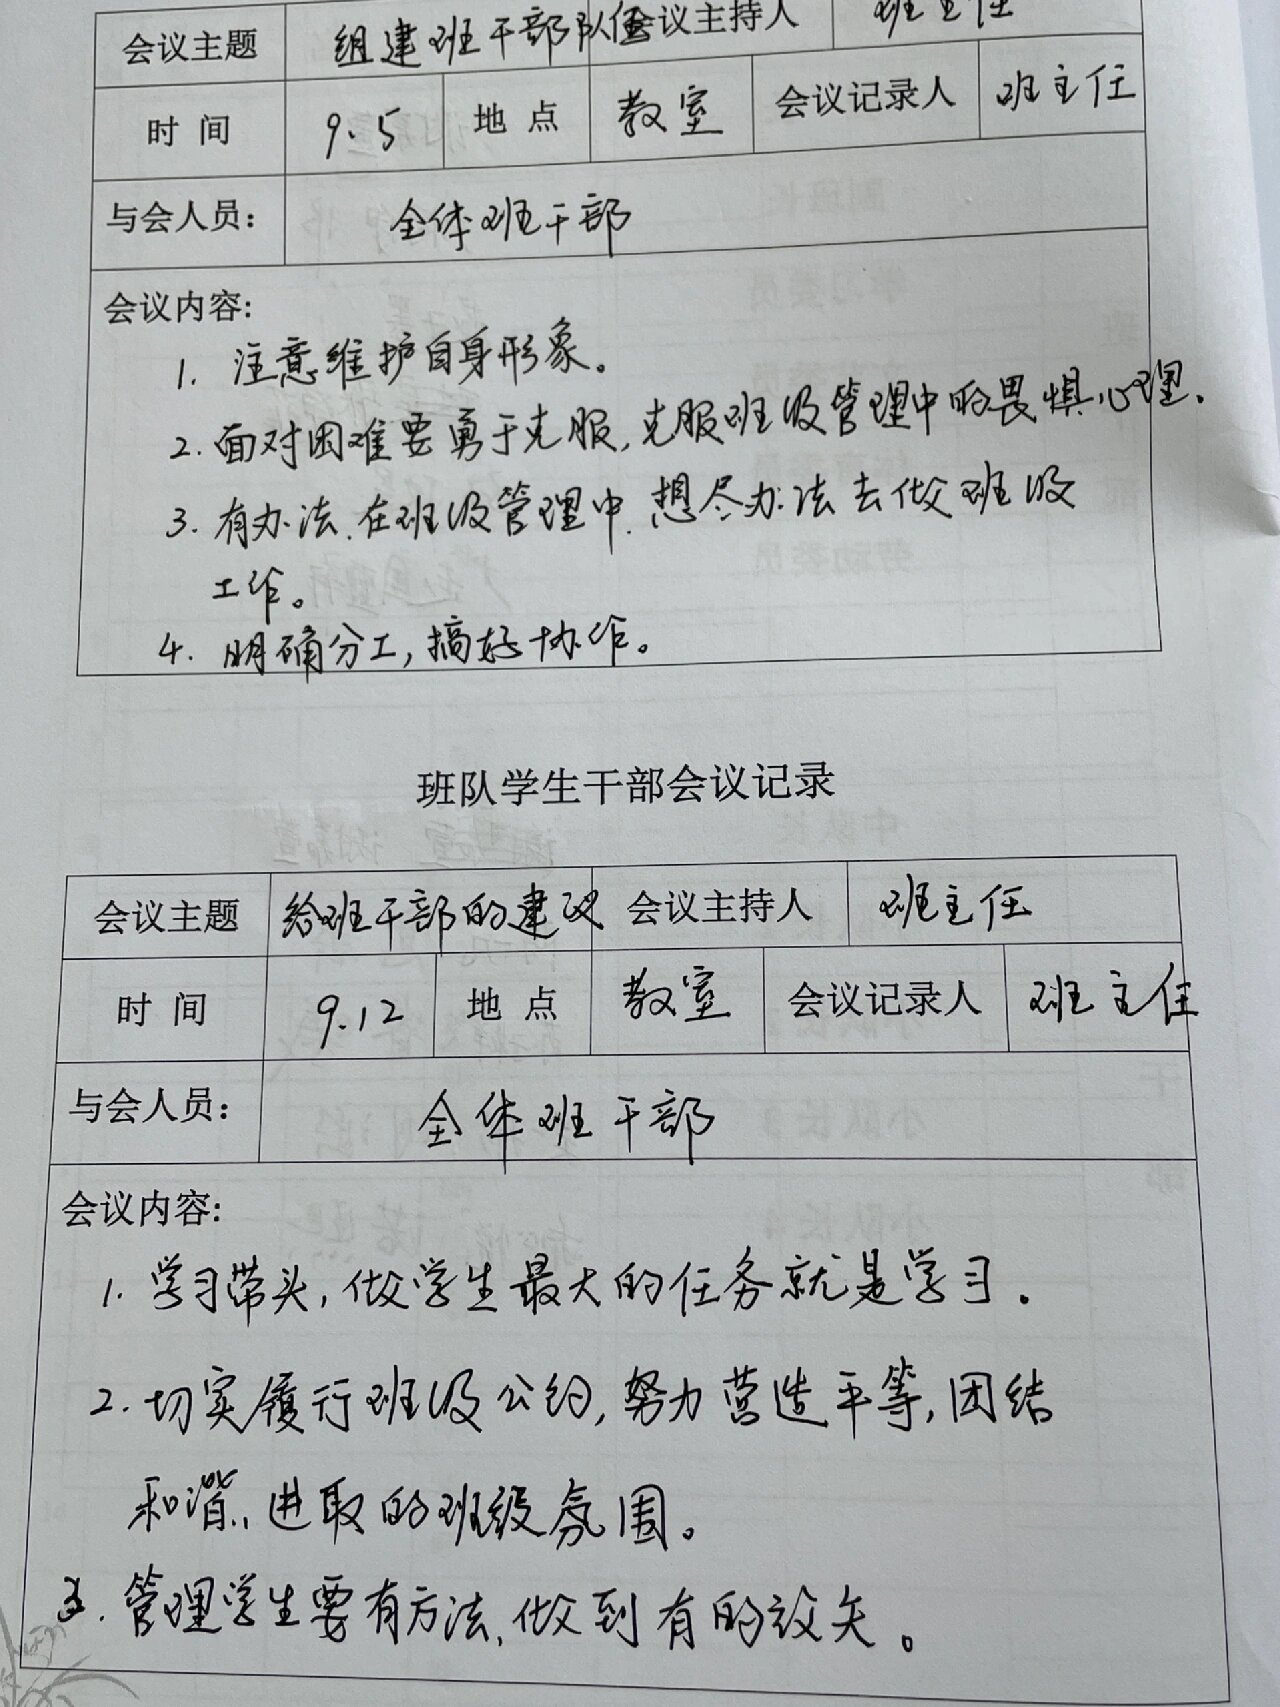 会议主题 组建班干部队伍 会议主持人 班主任
时 间 9.5 地 点 教室 会议记录人 班主任
与会人员: 全体班干部
会议内容:
1. 注意维护自身形象。
2. 面对困难要勇于克服,克服班级管理中的畏惧心理.
3. 有办法.在班级管理中.想尽办法去做班级
工作。
4. 明确分工,搞好协作。
班队学生干部会议记录
会议主题 给班干部的建议 会议主持人 班主任
时 间 9.12 地 点 教室 会议记录人 班主任
与会人员: 全体班干部
会议内容:
1. 学习带头,做学生最大的任务就是学习.
2. 切实履行班级公约,努力营造平等,团结
和谐、进取的班级氛围。
3. 管理学生要有方法,做到有的放矢。